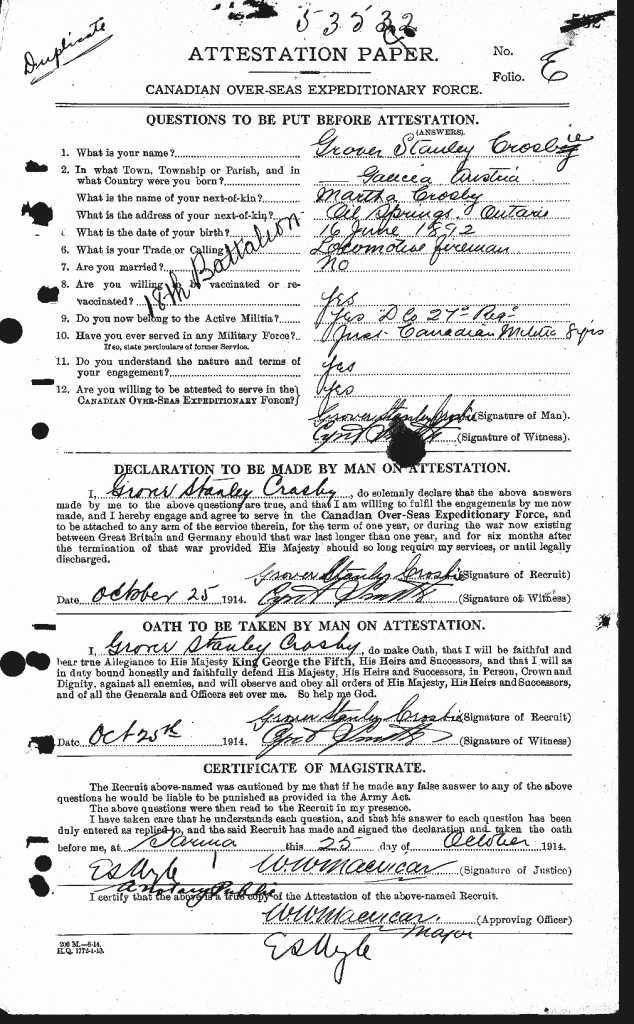 Duplicate
53532
ATTESTATION PAPER.
No.
Folio. E
CANADIAN OVER-SEAS EXPEDITIONARY FORCE.
QUESTIONS TO BE PUT BEFORE ATTESTATION.
(ANSWERS).
1. What is your name? Grover Stanley Crosbie
2. In what Town, Township or Parish, and in
what Country were you born? Galicia Austria
3. What is the name of your next-of-kin? Martha Crosby
4. What is the address of your next-of-kin? Oil Springs. Ontario
5. What is the date of your birth? 16 June 1892
6. What is your Trade or Calling? Locomotive fireman
7. Are you married? No
8. Are you willing to be vaccinated or re-
vaccinated? Yes
18th Battalion
9. Do you now belong to the Active Militia? Yes D Co 27th Reg
10. Have you ever served in any Military Force? Canadian Militia 8 yrs
If so, state particulars of former Service.
11. Do you understand the nature and terms of
your engagement? Yes
12. Are you willing to be attested to serve in the
CANADIAN OVER-SEAS EXPEDITIONARY FORCE? Yes
Grover Stanley Crosbie (Signature of Man).
(Signature of Witness).
DECLARATION TO BE MADE BY MAN ON ATTESTATION.
I, Grover Stanley Crosby, do solemnly declare that the above answers
made by me to the above questions are true, and that I am willing to fulfil the engagements by me now
made, and I hereby engage and agree to serve in the Canadian Over-Seas Expeditionary Force, and
to be attached to any arm of the service therein, for the term of one year, or during the war now existing
between Great Britain and Germany should that war last longer than one year, and for six months after
the termination of that war provided His Majesty should so long require my services, or until legally
discharged.
Grover Stanley Crosbie (Signature of Recruit)
Date October 25 1914. (Signature of Witness)
OATH TO BE TAKEN BY MAN ON ATTESTATION.
I, Grover Stanley Crosby, do make Oath, that I will be faithful and
bear true Allegiance to His Majesty King George the Fifth, His Heirs and Successors, and that I will as
in duty bound honestly and faithfully defend His Majesty, His Heirs and Successors, in Person, Crown and
Dignity, against all enemies, and will observe and obey all orders of His Majesty, His Heirs and Successors,
and of all the Generals and Officers set over me. So help me God.
Grover Stanley Crosbie (Signature of Recruit)
Date Oct 25th 1914. (Signature of Witness)
CERTIFICATE OF MAGISTRATE.
The Recruit above-named was cautioned by me that if he made any false answer to any of the above
questions he would be liable to be punished as provided in the Army Act.
The above questions were then read to the Recruit in my presence.
I have taken care that he understands each question, and that his answer to each question has been
duly entered as replied to, and the said Recruit has made and signed the declaration and taken the oath
before me, at Sarnia this 25 day of October 1914.
(Signature of Justice)
a notary Public
I certify that the above is a true copy of the Attestation of the above-named Recruit.
(Approving Officer)
Major
200 M.—8-14.
H.Q. 1772-1-13.